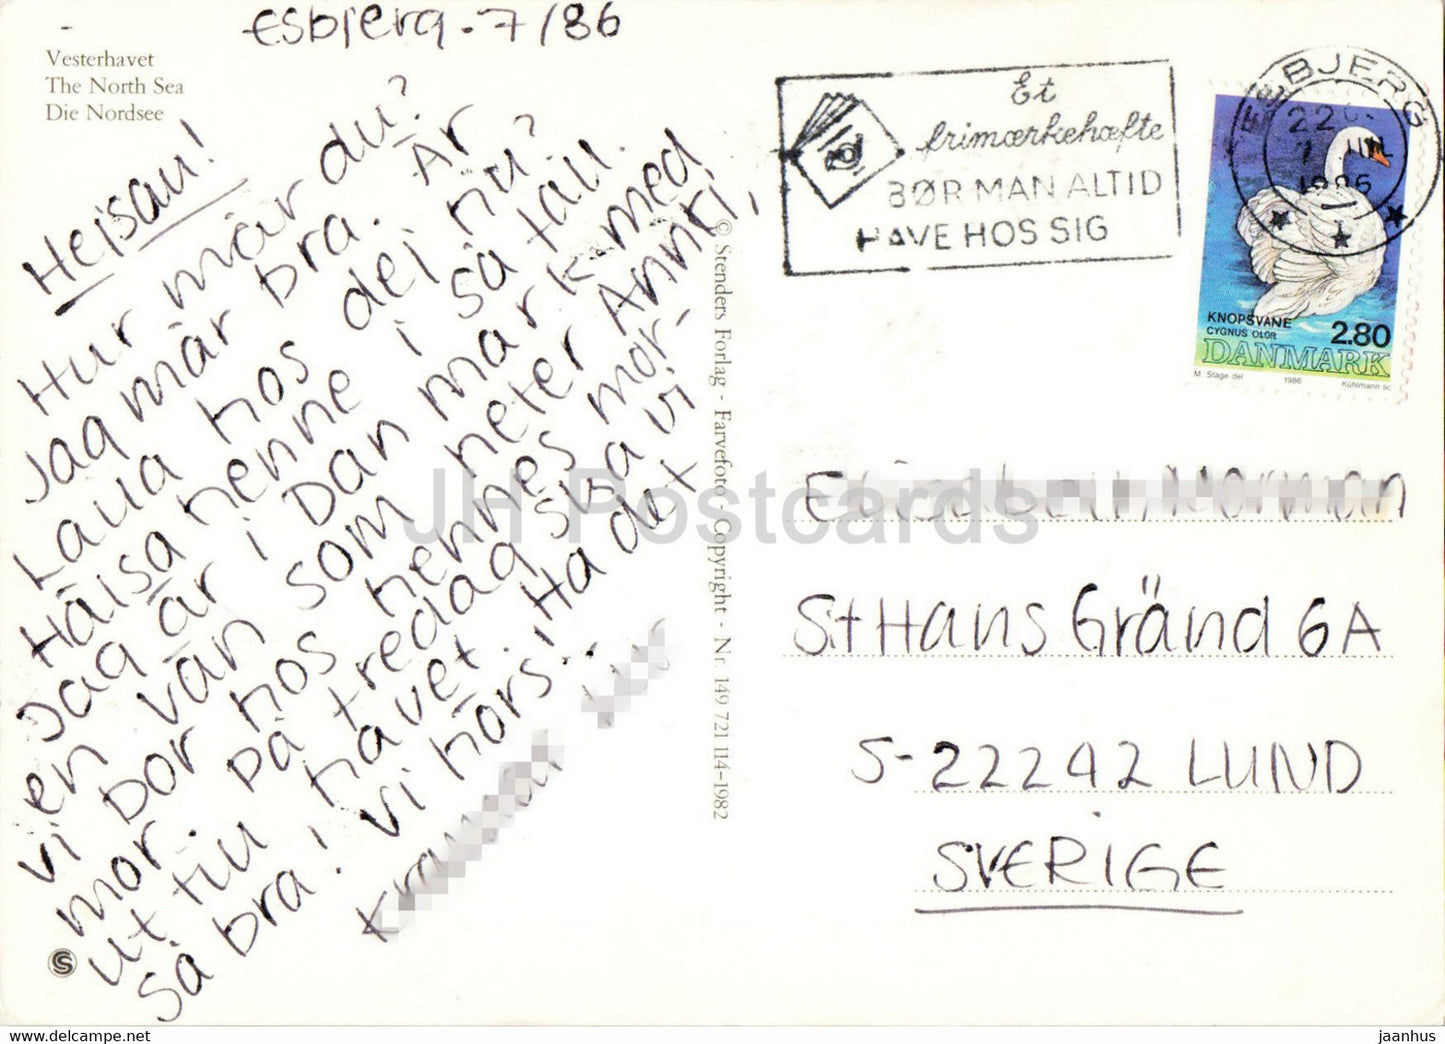 Esbjerg. 7/86
Vesterhavet
The North Sea
Die Nordsee
Heisan!
Hur mår du?
Jag mår bra. Är
Laila hos dej nu?
Hälsa henne i så fall.
Jag är i Danmark med
en vän som heter Annki,
vi bor hos hennes mor-
mor. På fredag ska vi
ut till havet. Ha det
så bra! Vi hörs...
Kramar
© Stenders Forlag - Farvefoto - Copyright - Nr. 149 721 114-1982
Et
frimærkehæfte
BØR MAN ALTID
HAVE HOS SIG
ESBJERG
1986
KNOPSVANE
CYGNUS OLOR
2.80
DANMARK
M. Stage del 1986 Kühlmann sc
St Hans Gränd 6A
S-22242 LUND
SVERIGE
S
JH Postcards
jaanhus
https://www.jhpostcards.com